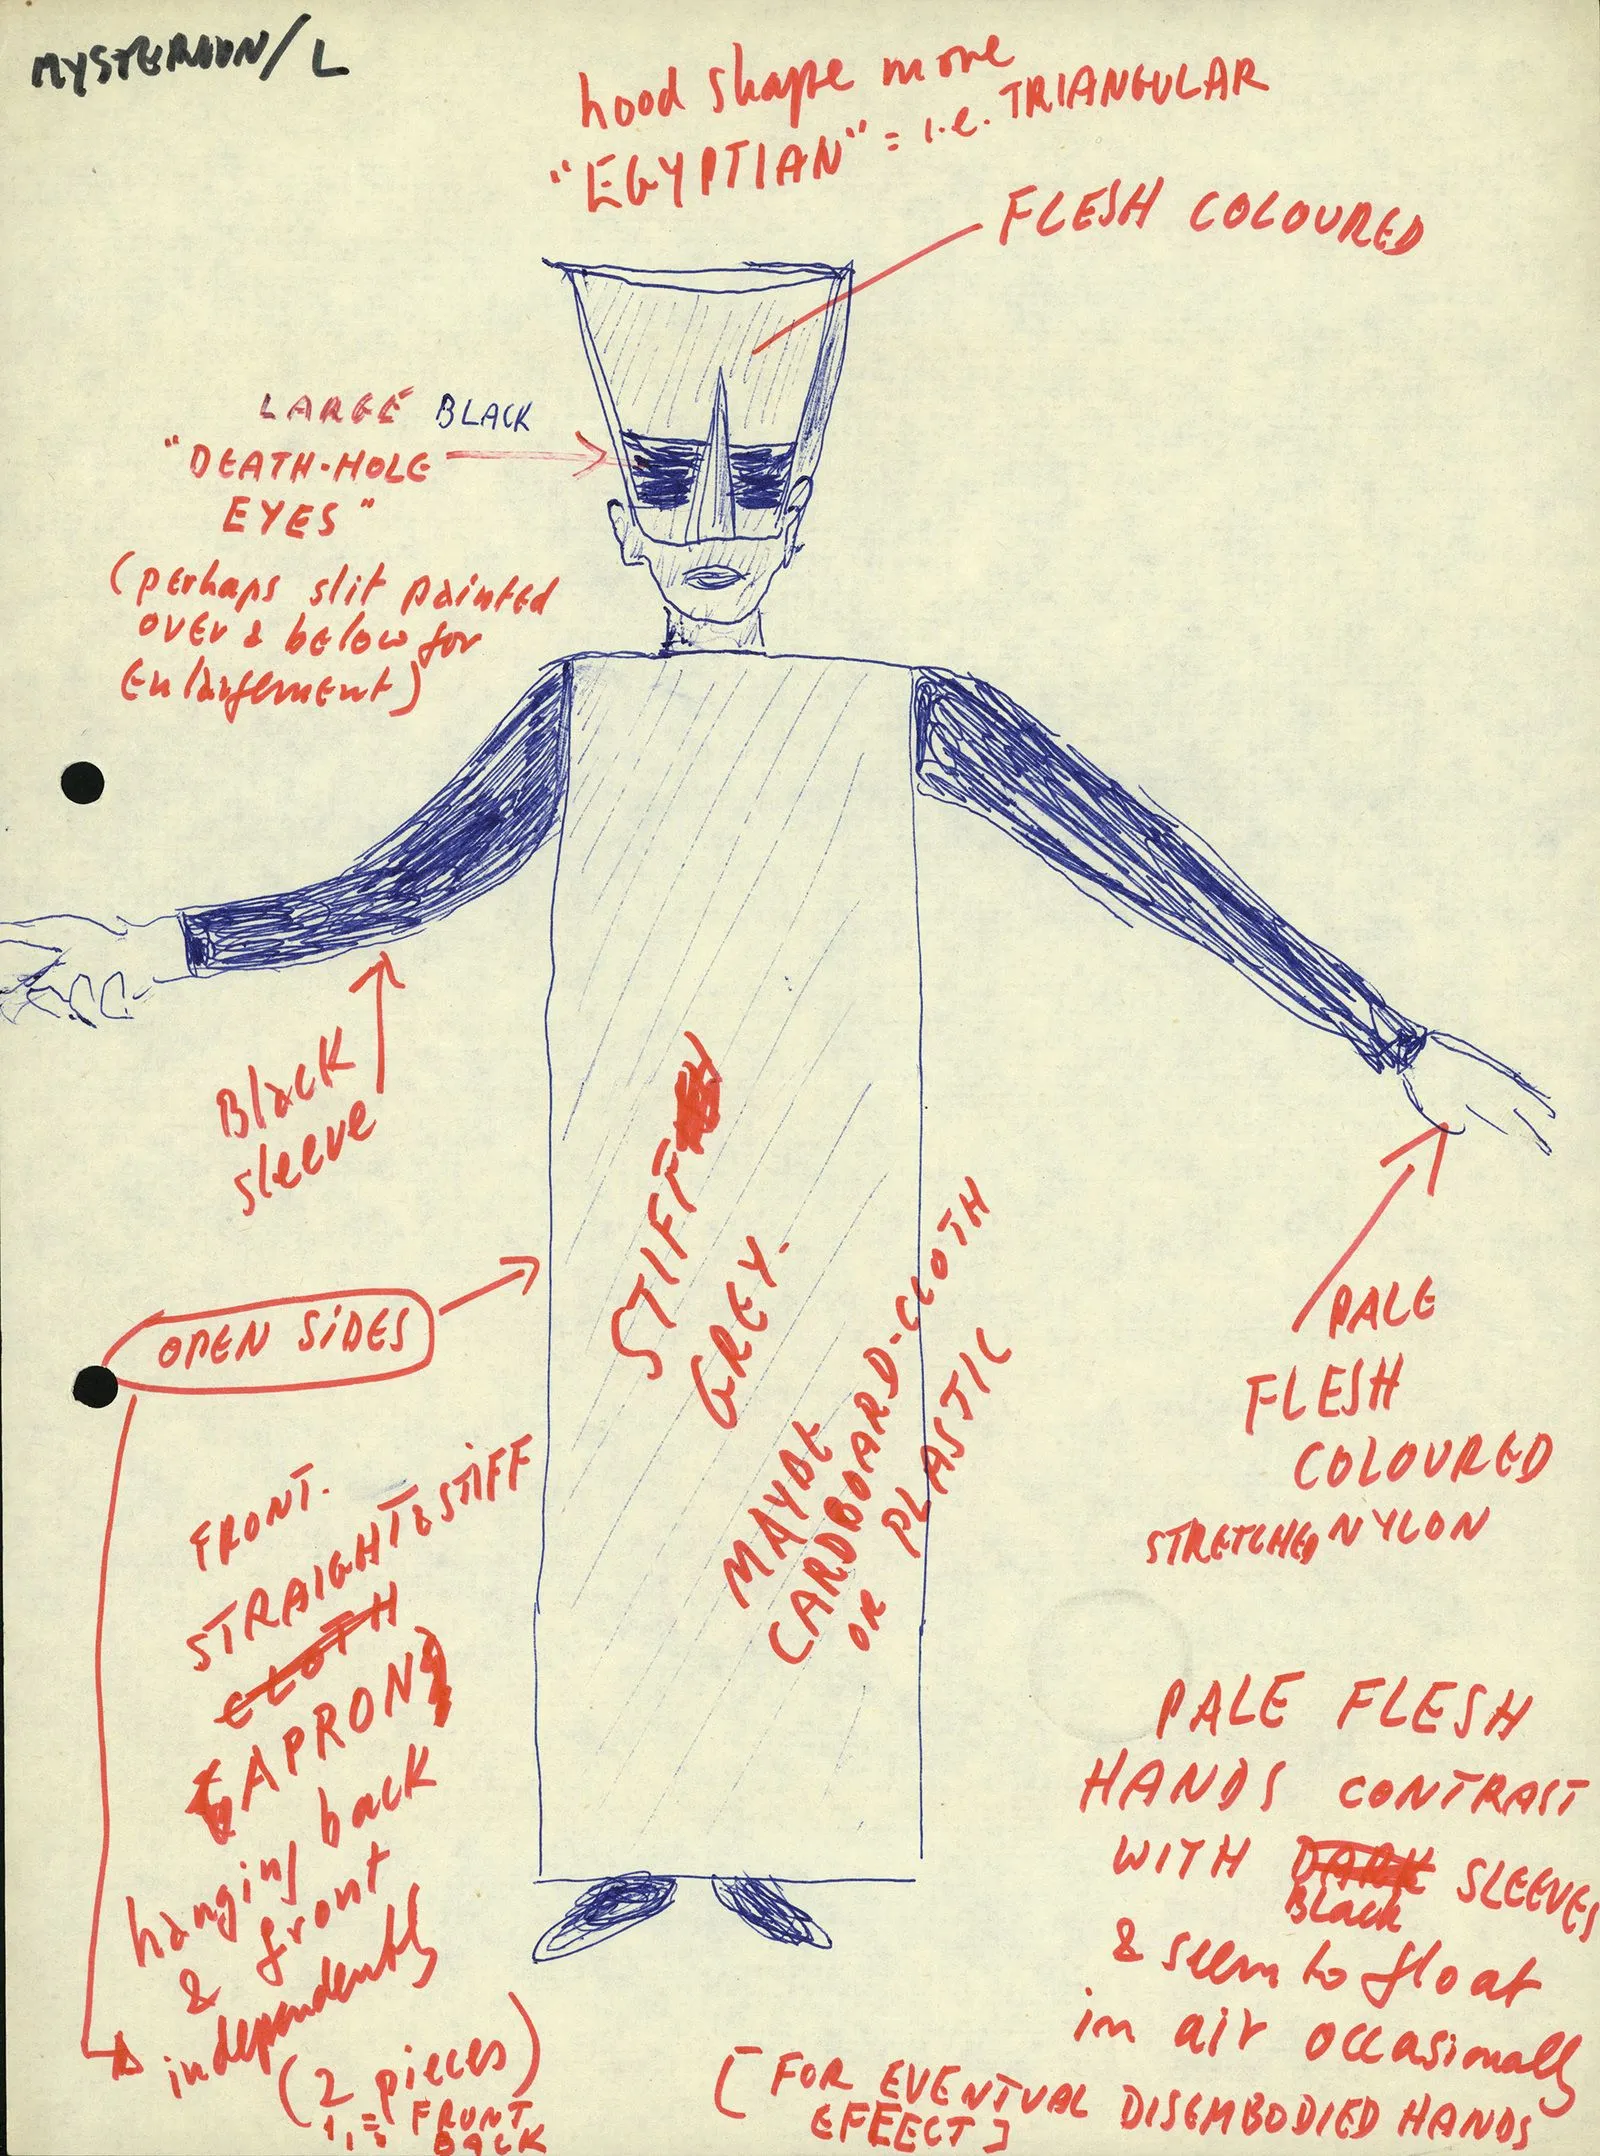 MYSTERION/L
hood shape more
"EGYPTIAN" = i.e. TRIANGULAR
FLESH COLOURED
LARGE BLACK
"DEATH-HOLE
EYES"
(perhaps slit painted
over & below for
Enlargement)
Black
sleeve
OPEN SIDES
STIFF
GREY.
MAYBE
CARDBOARD-CLOTH
OR PLASTIC
PALE
FLESH
COLOURED
STRETCHED NYLON
FRONT.
STRAIGHT & STIFF
CLOTH
(APRON)
hanging back
& front
independently
(2 pieces)
FRONT
BACK
PALE FLESH
HANDS CONTRAST
WITH DARK SLEEVES
Black
& seem to float
in air occasionally
[FOR EVENTUAL DISEMBODIED HANDS
EFFECT]